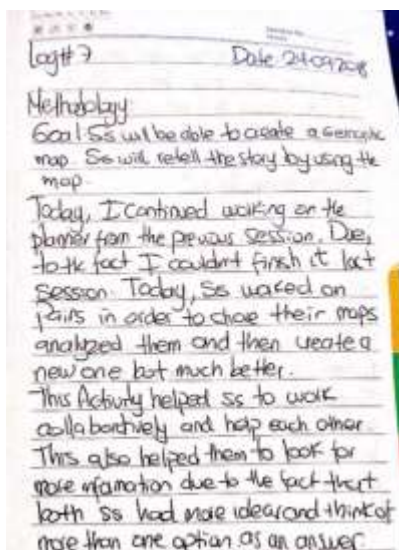 Log# 7 Date 24092018
Methodology
Goal: Ss will be able to create a semantic
map. Ss will retell the story by using the
map.
Today, I continued working on the
planner from the previous session. Due,
to the fact I couldn't finish it last
session. Today, Ss worked on
pairs in order to their maps
analyzed them and then create a
new one but much better.
This Activity helped ss to work
collaboratively and help each other.
This also helped them to look for
more information due to the fact that
both Ss had more ideas and think of
more than one option as an answer